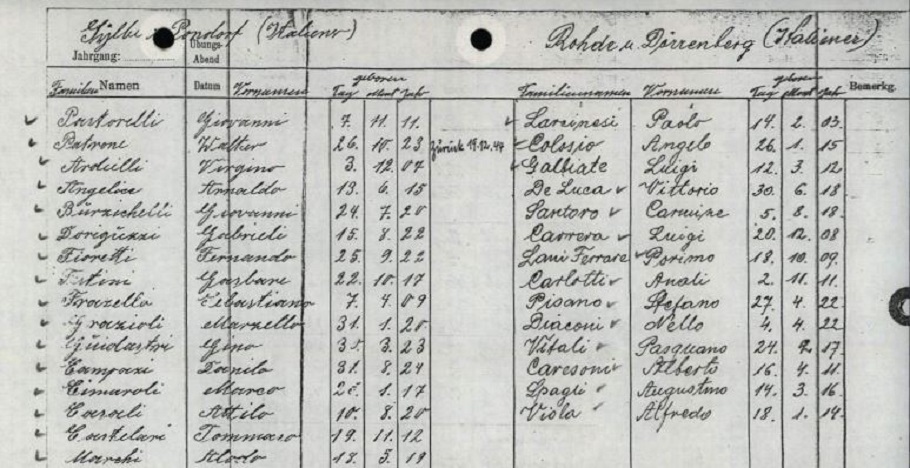 (Italiener) Rohde u. Dörrenberg (Italiener)
Jahrgang: Übungs-
Abend
geboren geboren
Familien Namen Datum Vornamen Tag Mont Jahr Familiennamen Vornamen Tag Mont Jahr Bemerkg.
Pastorelli Giovanni 7. 11. 11. Larcinesi Paolo 19. 2. 03.
Patrone Walter 26. 10. 23 Zürück 19.12.44 Colossio Angelo 26. 1. 15
Arduilli Virgino 3. 12. 07 Galbiate Luigi 12. 3. 12
Angelice Arnaldo 13. 6. 15 De Luca Vittorio 30. 6. 18
Burzichelli Giovanni 24. 7. 20 Santoro Carmine 5. 8. 18.
Doriguzzi Gabrieli 15. 8. 22 Carrera Luigi 20. 12. 08
Fioretti Fernando 25. 9. 22 Lani Ferrare Porimo 18. 10. 09.
Gasbare 22. 10. 17 Carlotti 2. 11. 11.
Frazello Sebastiano 7. 4. 09 Pisano Stefano 27. 4. 22
Grazioli Marzello 31. 1. 20 Diaconi Nello 4. 4. 22
Guidastri Gino 3. 23 Vitali Pasquano 24. 2. 17
Campaxi Danilo 31. 8. 24 Caresoni Alberti 16. 4. 11.
Cimaroli Marco 1. 17 Spagli Augustino 14. 3. 16
Casali Attilo 10. 8. 20 Viola Alfredo 18. 1. 14.
Castelari Tommaso 19. 11. 12
Marchi Aldo 13. 5. 19